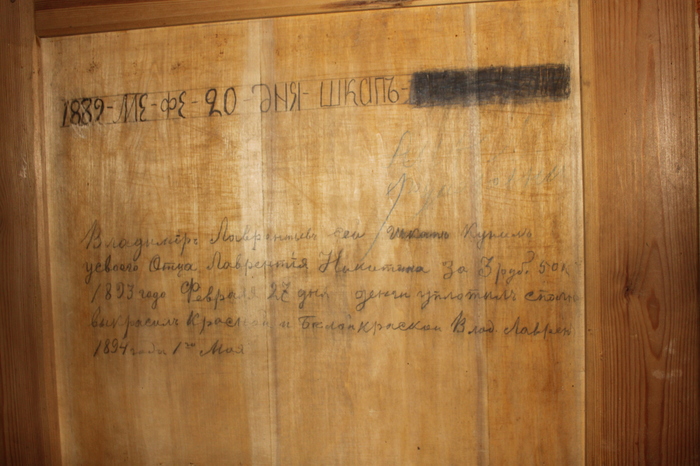 1832-МЕ-ФЕ-20-ДНЯ-ШКАПЪ-
Владимiръ Лаврентьевъ сей шкапъ Купилъ
усвоего Отца Лаврентiя Никитина за 3 руб. 50 к
1893 года Февраля 27 дня денги уплотилъ сполно
выкрасилъ Красной и Белай краской Влад. Лаврен
1894 года 1го Мая